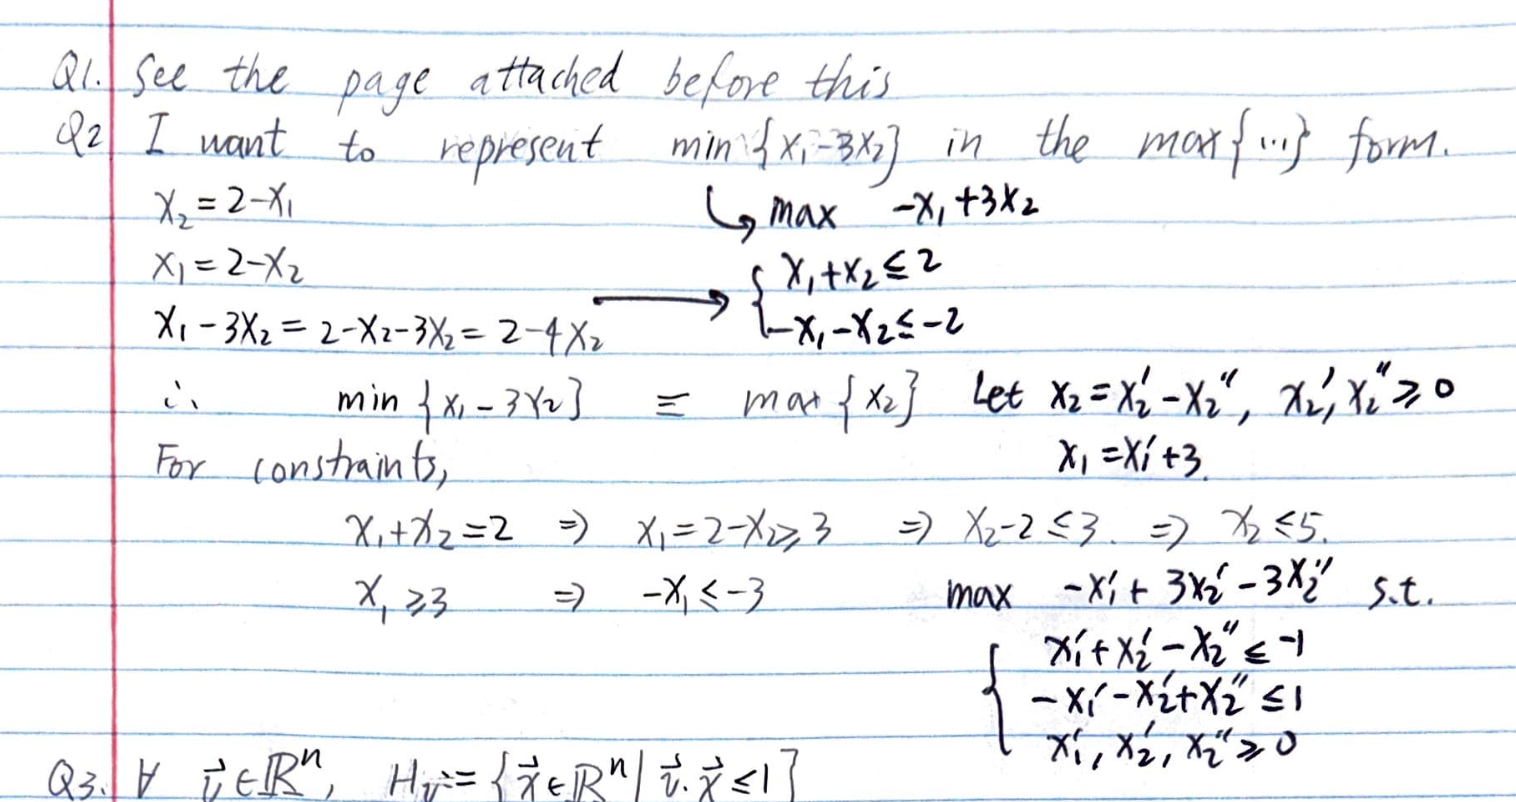 Q1. See the page attached before this
Q2 I want to represent min {x₁-3x₂} in the max{...} form.
x₂ = 2-x₁
↳ max -x₁+3x₂
x₁ = 2-x₂
{ x₁+x₂ ≤ 2
x₁-3x₂ = 2-x₂-3x₂ = 2-4x₂ →
-x₁-x₂ ≤ -2
∴ min {x₁-3x₂} ≡ max {x₂}
Let x₂ = x₂'-x₂'', x₂', x₂'' ≥ 0
x₁ = x₁'+3.
For constraints,
x₁+x₂ = 2 ⇒ x₁ = 2-x₂ ≥ 3 ⇒ x₂-2 ≤ 3. ⇒ x₂ ≤ 5.
x₁ ≥ 3 ⇒ -x₁ ≤ -3
max -x₁'+3x₂'-3x₂'' s.t.
{ x₁'+x₂'-x₂'' ≤ -1
-x₁'-x₂'+x₂'' ≤ 1
x₁', x₂', x₂'' ≥ 0
Q3. ∀ v⃗ ∈ ℝⁿ, Hᵥ := {x⃗ ∈ ℝⁿ | v⃗·x⃗ ≤ 1}